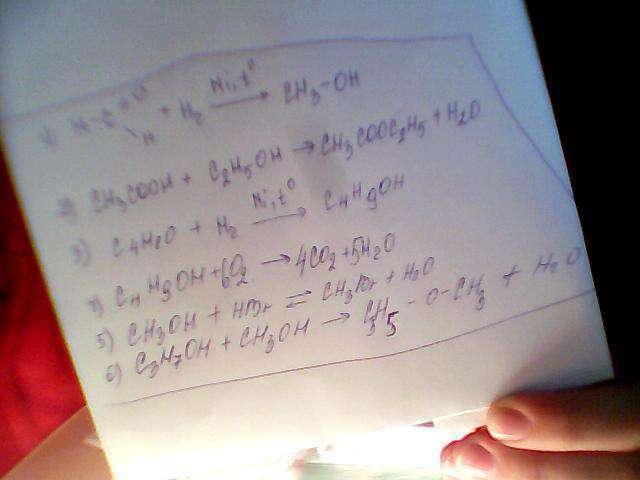 1) H-C=O + H₂ Ni,t° → CH₃-OH
H
2) CH₃COOH + C₂H₅OH → CH₃COOC₂H₅ + H₂O
3) C₄H₈O + H₂ Ni,t° → C₄H₉OH
4) C₄H₉OH + 6O₂ → 4CO₂ + 5H₂O
5) CH₃OH + HBr ⇌ CH₃Br + H₂O
6) C₃H₇OH + CH₃OH → C₃H₅-O-CH₃ + H₂O